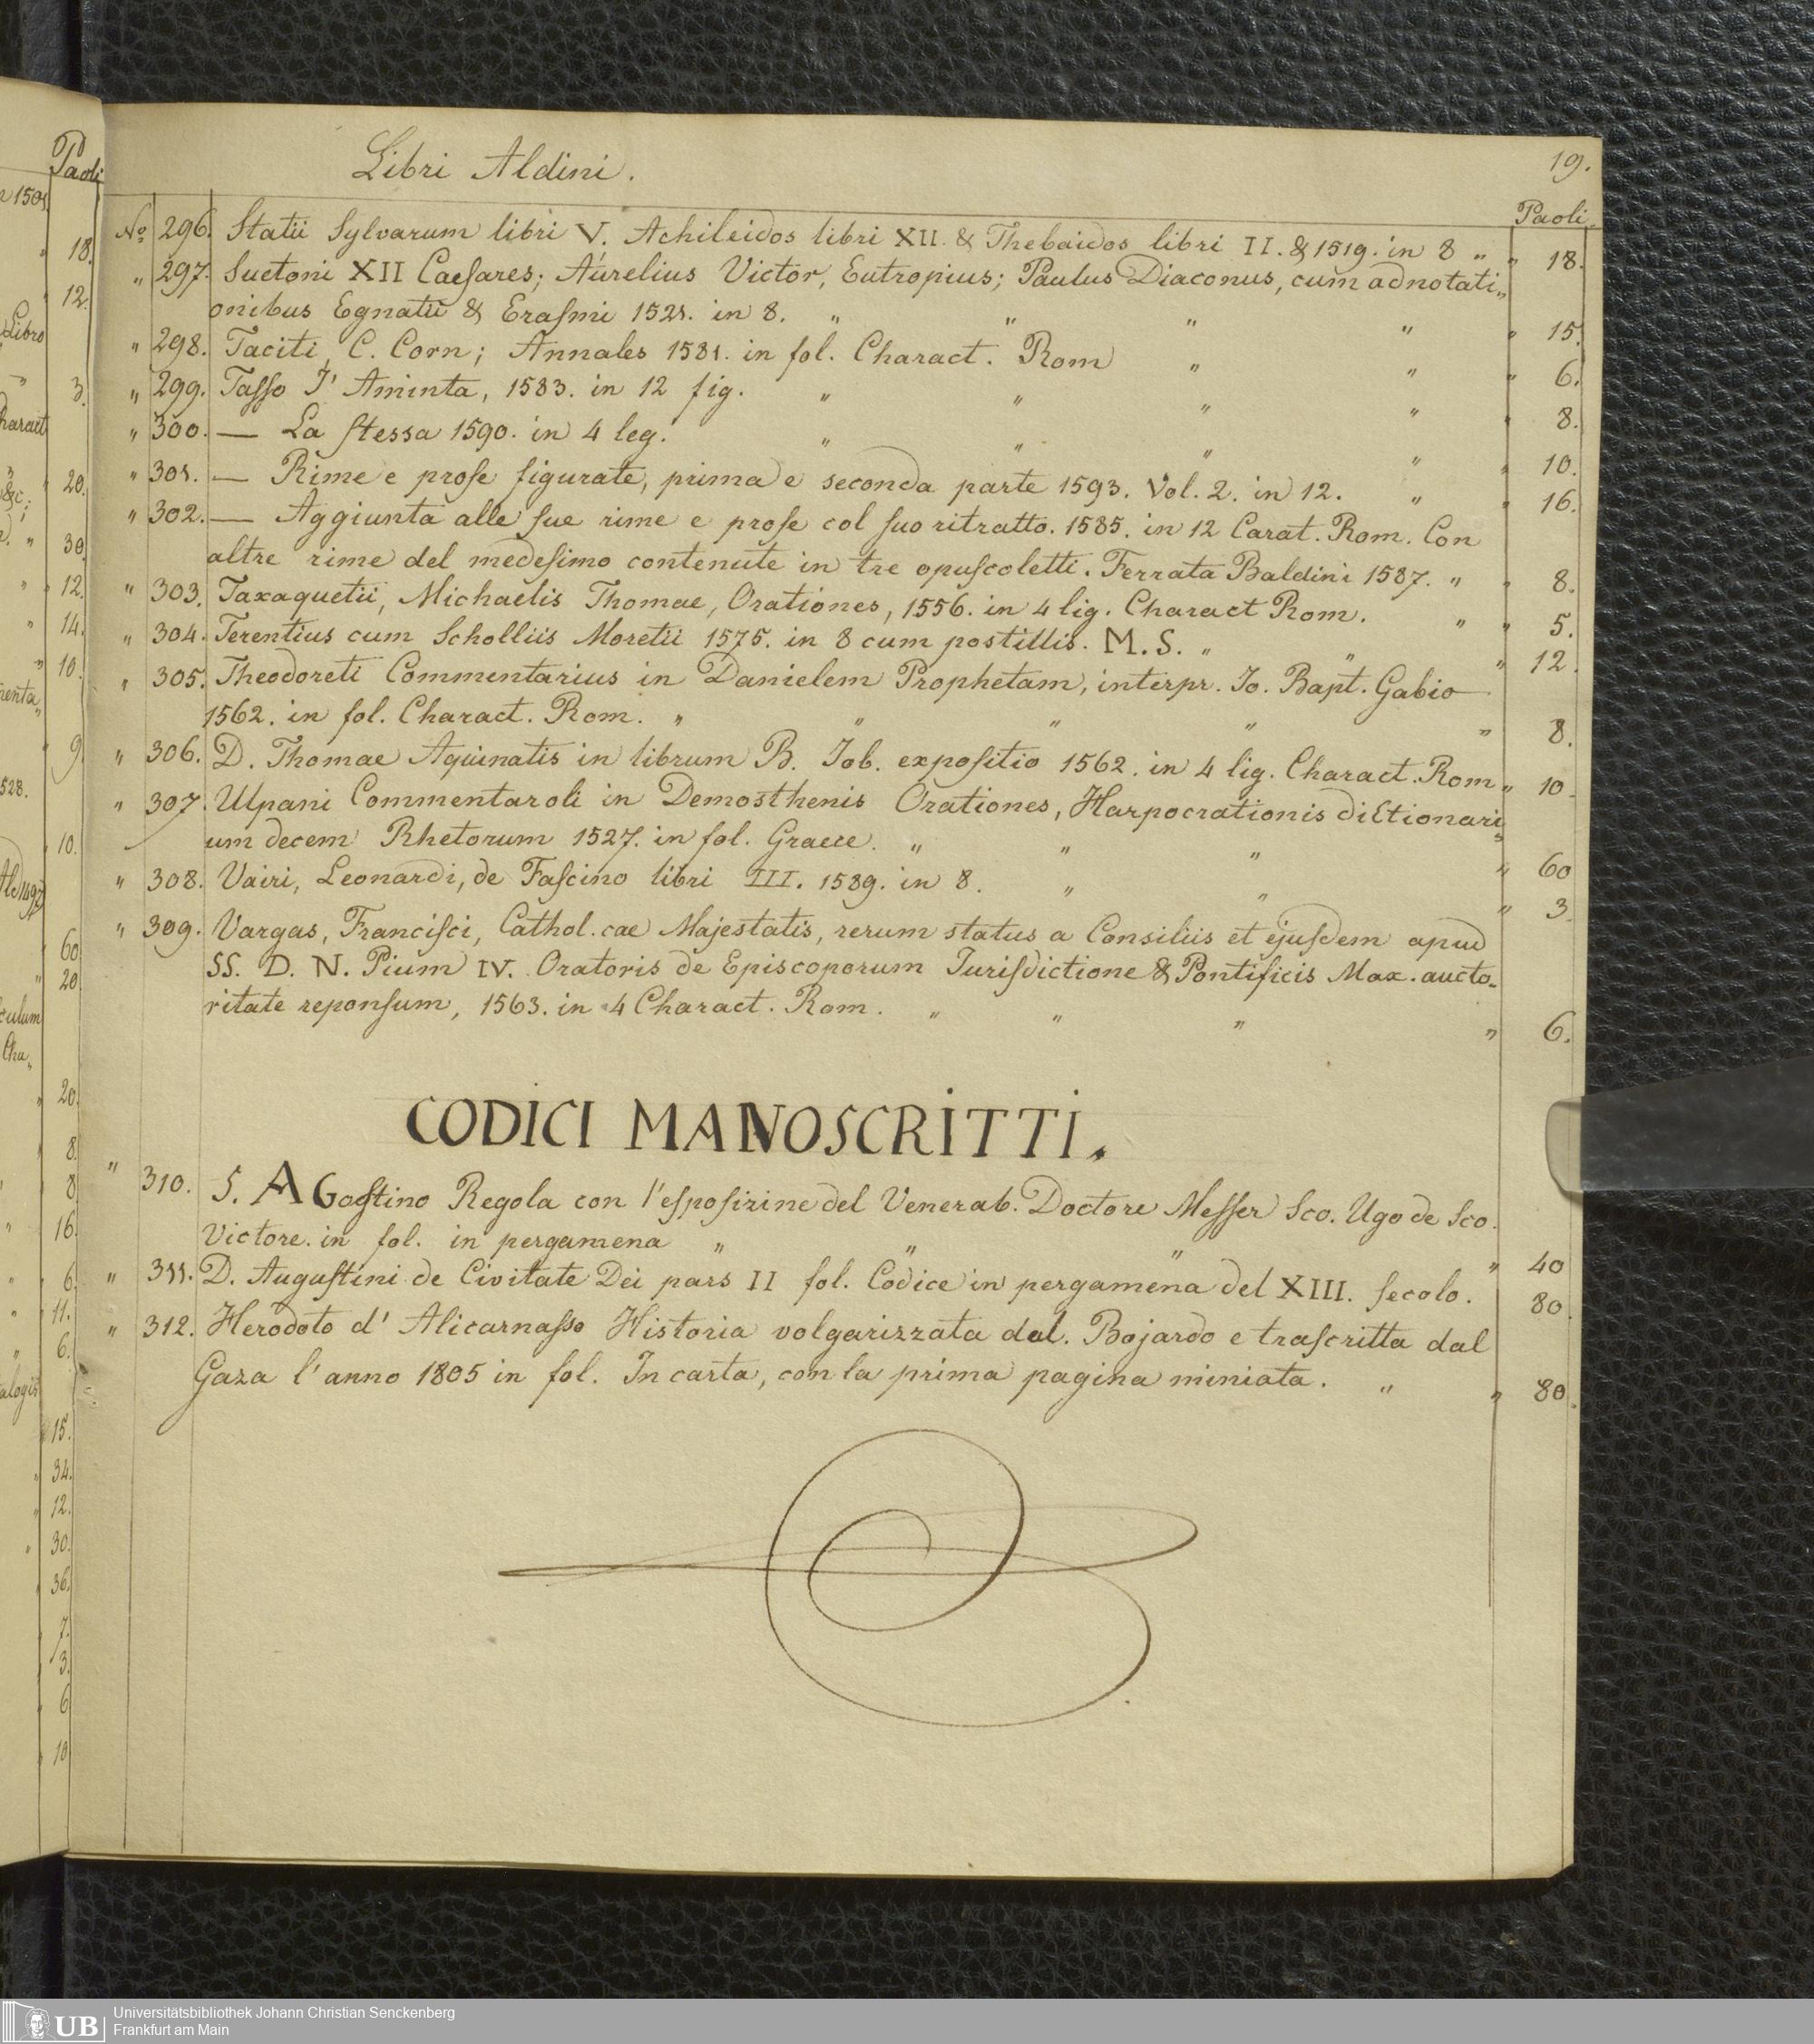 Libri Aldini.
19.
Paoli
No. 296. Statii Sylvarum libri V. Achileidos libri XII. & Thebaidos libri II. & 1519. in 8 " " 18.
" 297. Suetoni XII Caeſares; Aurelius Victor, Eutropius; Paulus Diaconus, cum adnotati„
onibus Egnatii & Eraſmi 1521. in 8. " " " " " 15.
" 298. Taciti, C. Corn; Annales 1581. in fol. Charact. Rom " " " 6.
" 299. Taſſo I' Aminta, 1583. in 12 fig. " " " " " 8.
" 300. — La ſtessa 1590. in 4 leg. " " " " " 10.
" 301. — Rime e proſe figurate, prima e seconda parte 1593. Vol. 2. in 12. " " 16.
" 302. — Aggiunta alle ſue rime e proſe col ſuo ritratto. 1585. in 12 Carat. Rom. Con
altre rime del medeſimo contenute in tre opuſcoletti. Ferrata Baldini 1587. " " 8.
" 303. Taxaquetii, Michaelis Thomae, Orationes, 1556. in 4 lig. Charact Rom. " " 5.
" 304. Terentius cum Scholliis Moretii 1575. in 8 cum postillis. M. S. " " " 12.
" 305. Theodoreti Commentarius in Danielem Prophetam, interpr. Jo. Bapt. Gabio
1562. in fol. Charact. Rom. " " " " " 8.
" 306. D. Thomae Aquinatis in librum B. Job. expoſitio 1562. in 4 lig. Charact. Rom " 10.
" 307. Ulpani Commentaroli in Demosthenis Orationes, Harpocrationis dictionari„
um decem Rhetorum 1527. in fol. Graece. " " " " 60
" 308. Vairi, Leonardi, de Faſcino libri III. 1589. in 8. " " " 3.
" 309. Vargas, Franciſci, Cathol. cae Majestatis, rerum status a Consiliis et ejuſdem apud
SS. D. N. Pium IV. Oratoris de Episcoporum Juriſdictione & Pontificis Max. aucto-
ritate reponſum, 1563. in 4 Charact. Rom. " " " " 6.
CODICI MANOSCRITTI.
" 310. S. AGoſtino Regola con l'eſpoſizine del Venerab. Doctore Meſſer Sco. Ugo de Sco.
Victore. in fol. in pergamena " " " " 40
" 311. D. Auguſtini de Civitate Dei pars II fol. Codice in pergamena del XIII. ſecolo. 80.
" 312. Herodoto d' Alicarnaſſo Historia volgarizzata dal. Bojardo e traſcritta dal
Gaza l'anno 1805 in fol. In carta, con la prima pagina miniata. " " 80.
Paoli
18.
12.
Libro
3.
20.
30.
12.
14.
10.
9.
528.
10.
60
20
culum
20.
8.
8
16.
6.
11.
6.
15.
34.
12.
30.
36.
7.
3.
6
10
UB
Universitätsbibliothek Johann Christian Senckenberg
Frankfurt am Main